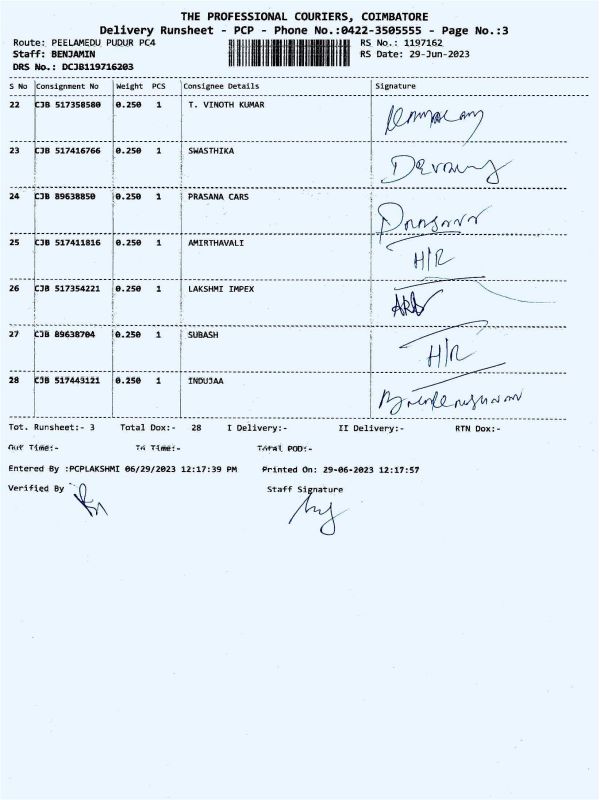 THE PROFESSIONAL COURIERS, COIMBATORE
Delivery Runsheet - PCP - Phone No.:0422-3505555 - Page No.:3
Route: PEELAMEDU PUDUR PC4 RS No.: 1197162
Staff: BENJAMIN RS Date: 29-Jun-2023
DRS No.: DCJB119716203
S No Consignment No Weight PCS Consignee Details Signature
22 CJB 517358580 0.250 1 T. VINOTH KUMAR
23 CJB 517416766 0.250 1 SWASTHIKA
24 CJB 89638850 0.250 1 PRASANA CARS
25 CJB 517411816 0.250 1 AMIRTHAVALI H/R
26 CJB 517354221 0.250 1 LAKSHMI IMPEX
27 CJB 89638704 0.250 1 SUBASH H/R
28 CJB 517443121 0.250 1 INDUJAA
Tot. Runsheet:- 3 Total Dox:- 28 I Delivery:- II Delivery:- RTN Dox:-
Out Time:- In Time:- Total POD:-
Entered By :PCPLAKSHMI 06/29/2023 12:17:39 PM Printed On: 29-06-2023 12:17:57
Verified By Staff Signature